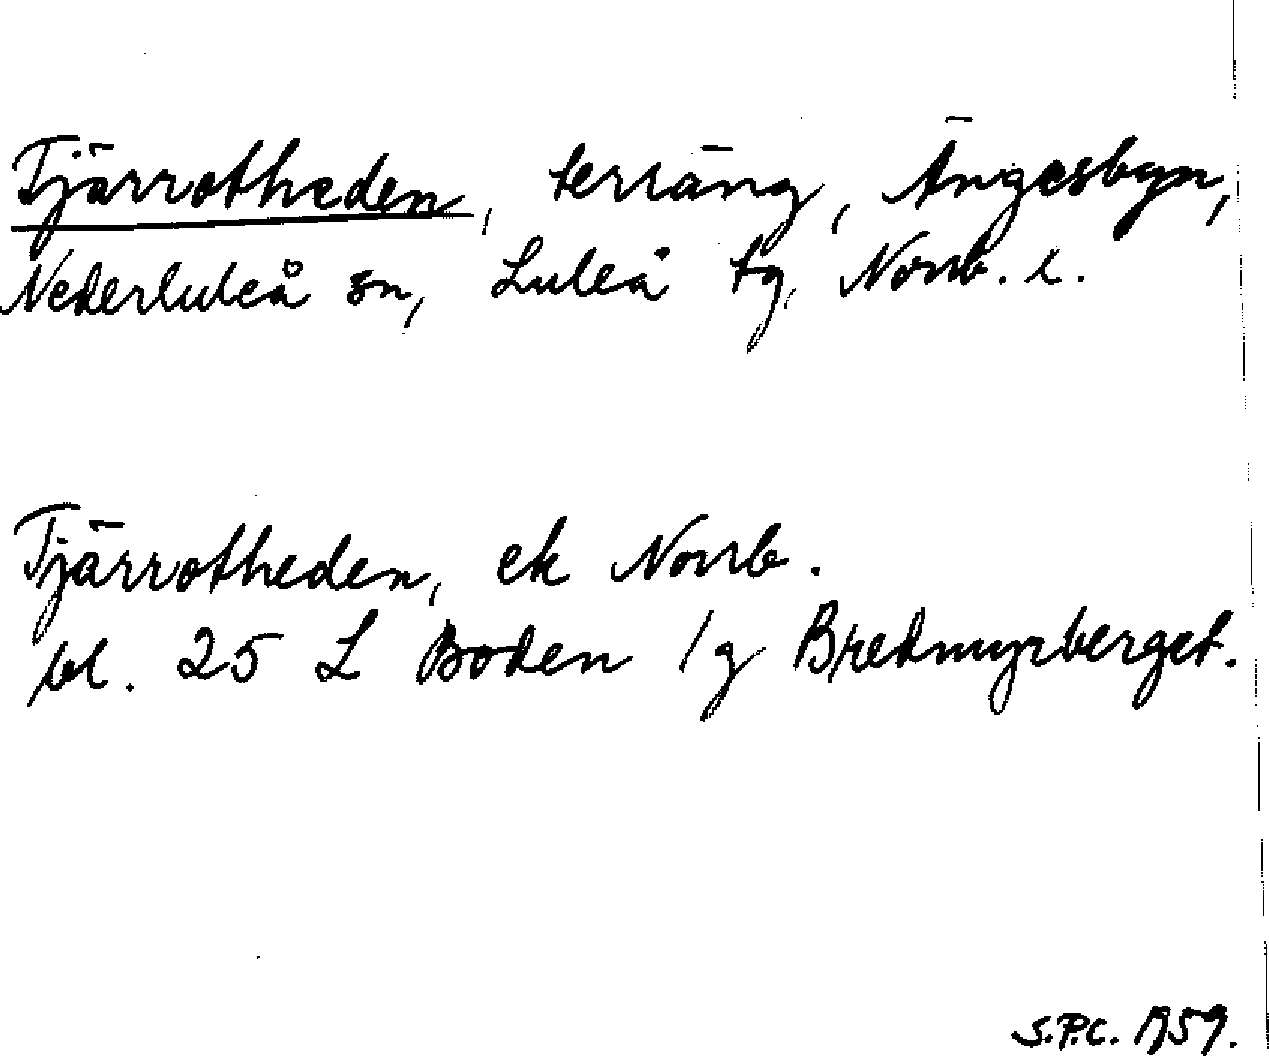 Tjärrotheden, terräng, Ängesbyn,
Nederluleå sn, Luleå tg, Norrb. l.
Tjärrotheden, ek Norrb.
bl. 25 L Boden /g Bredmyrberget.
S.P.C. 1959.